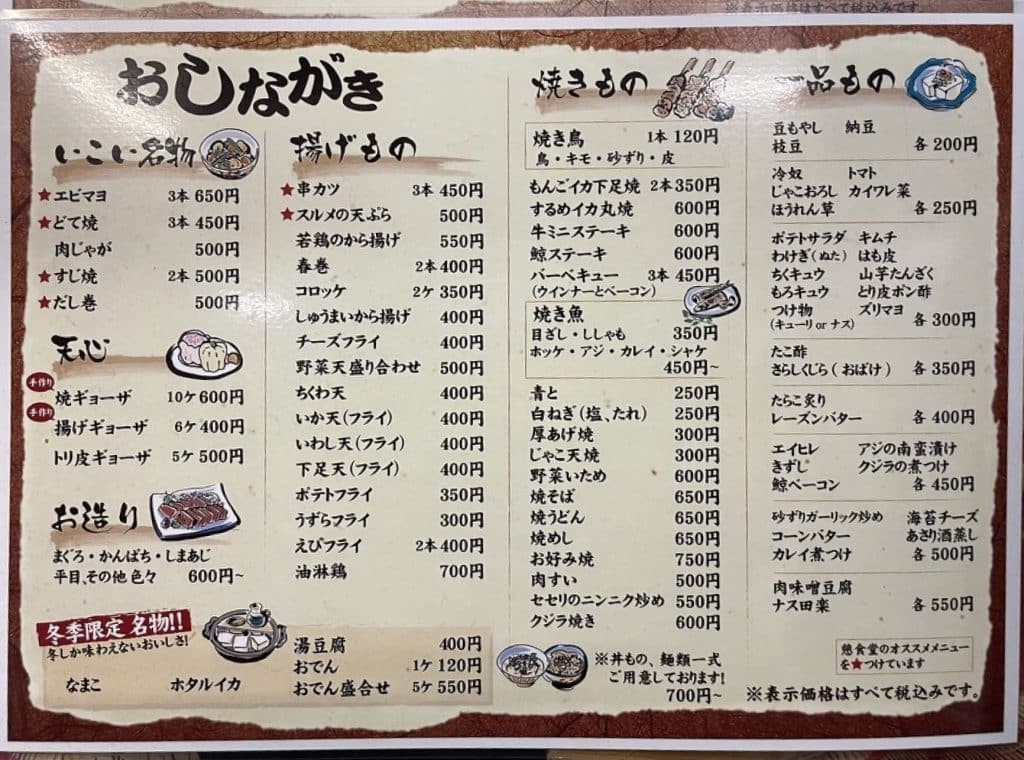 ※表示価格はすべて税込みです。
おしながき
いこい名物
★エビマヨ 3本 650円
★どて焼 3本 450円
肉じゃが 500円
★すじ焼 2本 500円
★だし巻 500円
天心
手作り
焼ギョーザ 10ケ 600円
手作り
揚げギョーザ 6ケ 400円
トリ皮ギョーザ 5ケ 500円
お造り
まぐろ・かんぱち・しまあじ
平目、その他 色々 600円~
冬季限定 名物!!
冬しか味わえないおいしさ!
なまこ ホタルイカ
湯豆腐 400円
おでん 1ケ 120円
おでん盛合せ 5ケ 550円
揚げもの
★串カツ 3本 450円
★スルメの天ぷら 500円
若鶏のから揚げ 550円
春巻 2本 400円
コロッケ 2ケ 350円
しゅうまいから揚げ 400円
チーズフライ 400円
野菜天盛り合わせ 500円
ちくわ天 400円
いか天(フライ) 400円
いわし天(フライ) 400円
下足天(フライ) 400円
ポテトフライ 350円
うずらフライ 300円
えびフライ 2本 400円
油淋鶏 700円
焼きもの
焼き鳥 1本 120円
鳥・キモ・砂ずり・皮
もんごイカ下足焼 2本 350円
するめイカ丸焼 600円
牛ミニステーキ 600円
鯨ステーキ 600円
バーベキュー 3本 450円
(ウインナーとベーコン)
焼き魚
目ざし・ししゃも 350円
ホッケ・アジ・カレイ・シャケ
450円~
青と 250円
白ねぎ(塩、たれ) 250円
厚あげ焼 300円
じゃこ天焼 300円
野菜いため 600円
焼そば 650円
焼うどん 650円
焼めし 650円
お好み焼 750円
肉すい 500円
セセリのニンニク炒め 550円
クジラ焼き 600円
※丼もの、麺類一式
ご用意しております!
700円~
一品もの
豆もやし 納豆
枝豆 各 200円
冷奴 トマト
じゃこおろし カイワレ菜
ほうれん草 各 250円
ポテトサラダ キムチ
わけぎ(ぬた) はも皮
ちくキュウ 山芋たんざく
もろキュウ とり皮ポン酢
つけ物 ズリマヨ
(キューリ or ナス) 各 300円
たこ酢
さらしくじら(おばけ) 各 350円
たらこ炙り
レーズンバター 各 400円
エイヒレ アジの南蛮漬け
きずし クジラの煮つけ
鯨ベーコン 各 450円
砂ずりガーリック炒め 海苔チーズ
コーンバター あさり酒蒸し
カレイ煮つけ 各 500円
肉味噌豆腐
ナス田楽 各 550円
憩食堂のオススメメニュー
を★つけています
※表示価格はすべて税込みです。